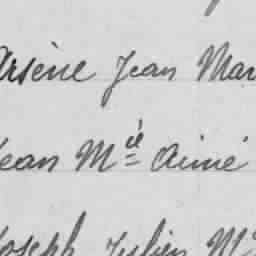 Arsène Jean Mar
Jean Mie Aimé
Joseph Julien M